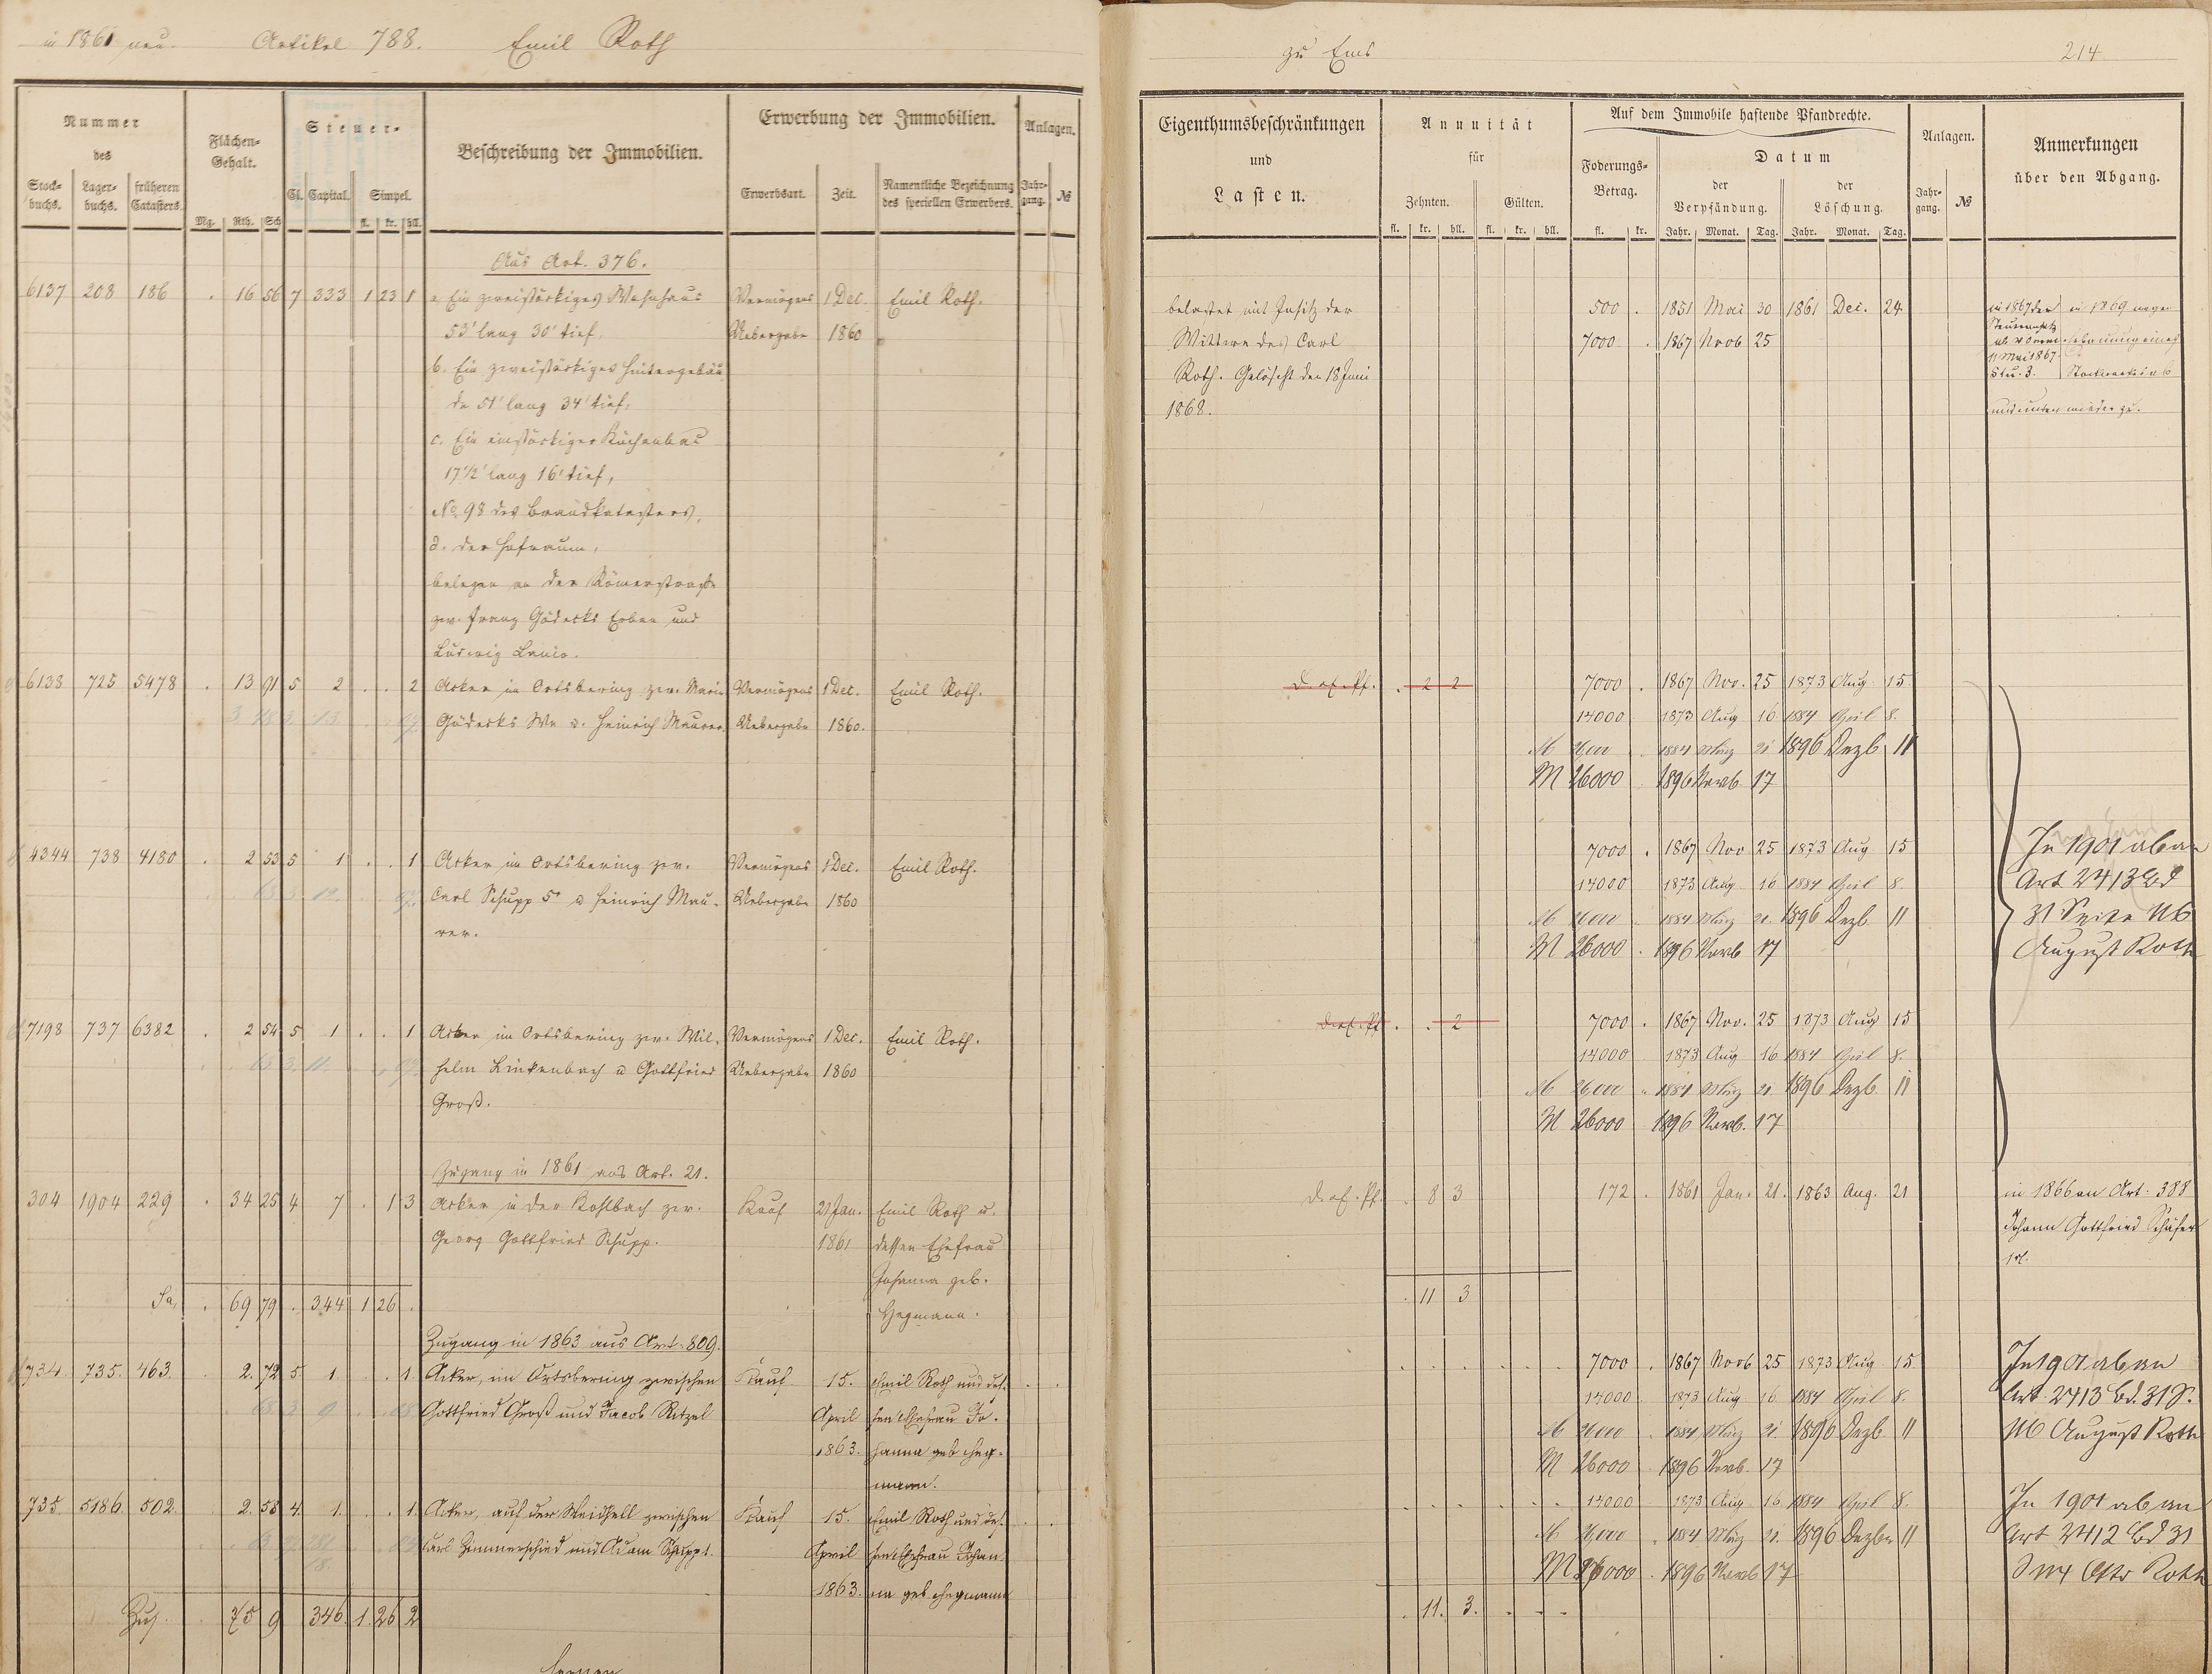 in 1861 neu. Artikel 788. Emil Roth
Nummer
des
Stock-
buchs.
Lager-
buchs.
früheren
Catasters.
Flächen-
Gehalt.
Mg. Rth. Sch
Steuer-
Cl. Capital. Simpel.
fl. kr. hll.
Beschreibung der Immobilien.
Erwerbung der Immobilien.
Erwerbsart. Zeit.
Namentliche Bezeichnung
des speciellen Erwerbers.
Anlagen.
Jahr-
gang. №
Aus Art. 376.
6137 208 186 . 16 56 7 333 1 23 1 a. Ein zweistöckiges Wohnhaus Vermögens 1 Dec. Emil Roth.
53' lang 30' tief, Uebergabe 1860
b. Ein zweistöckiges Hintergebäu
de 51' lang 34' tief,
c. Ein einstöckiger Küchenbau
17½' lang 16' tief,
No 98 des Brandkatasters,
d. der Hofraum,
belegen an der Römerstraße
zw. Franz Gödecks Erben und
Ludwig Lanio.
6138 725 5478 . 13 91 5 2 . . 2 Acker im Ortsbering zw. Marie Vermögens 1 Dec. Emil Roth.
Gödecks We u. Heinrich Maurer. Uebergabe 1860.
4344 738 4180 . 2 53 5 1 . . 1 Acker im Ortsbering zw. Vermögens 1 Dec. Emil Roth.
Carl Schupp 5r u Heinrich Mau- Uebergabe 1860
rer.
7198 737 6382 . 2 54 5 1 . . 1 Acker im Ortsbering zw. Wil- Vermögens 1 Dec. Emil Roth.
helm Linkenbach u Gottfried Uebergabe 1860
Groß.
Zugang in 1861 aus Art. 21.
304 1904 229 . 34 25 4 7 . 1 3 Acker in der Kohlbach zw. Kauf 21 Jan. Emil Roth u.
Georg Gottfried Schupp. 1861 dessen Ehefrau
Johanna geb.
Hegmann.
Sa. . 69 79 . 344 1 26 .
Zugang in 1863 aus Art. 809.
734. 735. 463. 2. 72 5. 1. . . 1. Acker, im Ortsbering zwischen Kauf 15. Emil Roth und des-
Gottfried Groß und Jacob Ritzel April sen Ehefrau Jo-
1863. hanna geb Heg-
mann.
735. 5186. 502. 2. 58 4. 1. . . 1. Acker, auf der Weidhell zwischen Kauf 15. Emil Roth und des-
Carl Zimmerschied und Adam Schupp 1. April sen Ehefrau Johan-
1863. na geb Hegmann
Zus. 75 9 346. 1. 26 2
ferner
zu Ems 214
Eigenthumsbeschränkungen
und
Lasten.
Annuität
für
Zehnten. Gülten.
fl. kr. hll. fl. kr. hll.
Auf dem Immobile haftende Pfandrechte.
Foderungs-
Betrag.
fl. kr.
Datum
der
Verpfändung.
der
Löschung.
Jahr. Monat. Tag. Jahr. Monat. Tag.
Anlagen.
Jahr-
gang. №
Anmerkungen
über den Abgang.
belastet mit Insitz der 500 . 1851 Mai 30 1861 Dec. 24
Wittwe des Carl 7000 . 1867 Novb 25
Roth. Gelöscht den 18 Juni
1868.
11 Mai 1867.
und unten wieder zu.
2 2 7000 . 1867 Nov. 25 1873 Aug 15
14000 1873 Aug 16 1884 April 8.
M 26000 1884 März 21 1896 Dezb 11
M 26000 . 1896 Novb. 17
7000 . 1867 Nov 25 1873 Aug 15
14000 1873 Aug 16 1884 April 8.
M 26000 1884 März 21. 1896 Dezb. 11
M 26000 . 1896 Novb 17
In 1901 ab an
Art 2413 Bd
31 Seite 116
August Roth
2 7000 . 1867 Nov. 25 1873 Aug 15
14000 1873 Aug 16 1884 April 8.
M 26000 1884 März 21. 1896 Dezb 11
M 26000 1896 Novb. 17
8 3 172 . 1861 Jan. 21. 1863 Aug. 21 in 1866 an Art. 388
Johann Gottfried Schäfer
1r.
. 11 3
7000 . 1867 Novb 25 1873 Aug 15 In 1901 ab an
14000 1873 Aug 16 1884 April 8. Art. 2413 Bd. 31 S.
M 26000 1884 März 21. 1896 Dezb. 11 116 August Roth
M 26000 . 1896 Novb. 17
14000 1873 Aug 16 1884 April 8. In 1901 ab an
M 26000 1884 März 21. 1896 Dezbr 11 Art 2412 Bd 31
M 26000 . 1896 Novb 17 S 114 Otto Roth
. 11. 3.